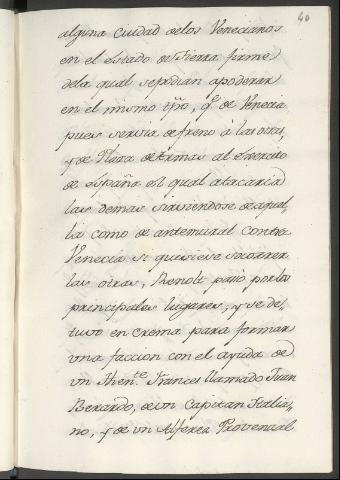 40
alguna ciudad delos Venecianos
en el Estado de Tierra firme
dela qual sepodian apoderar
en el mismo tpõ, q.e de Venecia
pues serviria de freno à las otras,
y de Plaza de Armas al Exercito
de España el qual atacaria
las demas sirviendose de aquel-
la como de antemural contra
Venecia si quisiese socorrer
las otras, Renolt pasó por los
principales lugares, y se de-
tuvo en Crema para formar
una faccion con el ayuda de
un Then.te Frances llamado Juan
Berardo, de un Capitan Italia-
no, y de un Alferez Provenzal